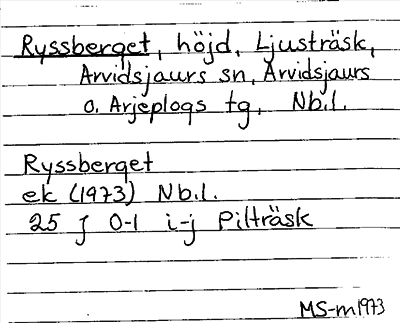 Ryssberget, höjd, Ljusträsk,
Arvidsjaurs sn, Arvidsjaurs
o. Arjeplogs tg, Nb.l.
Ryssberget
ek (1973) Nb.l.
25 J 0-1 i-j Pilträsk
MS-m1973